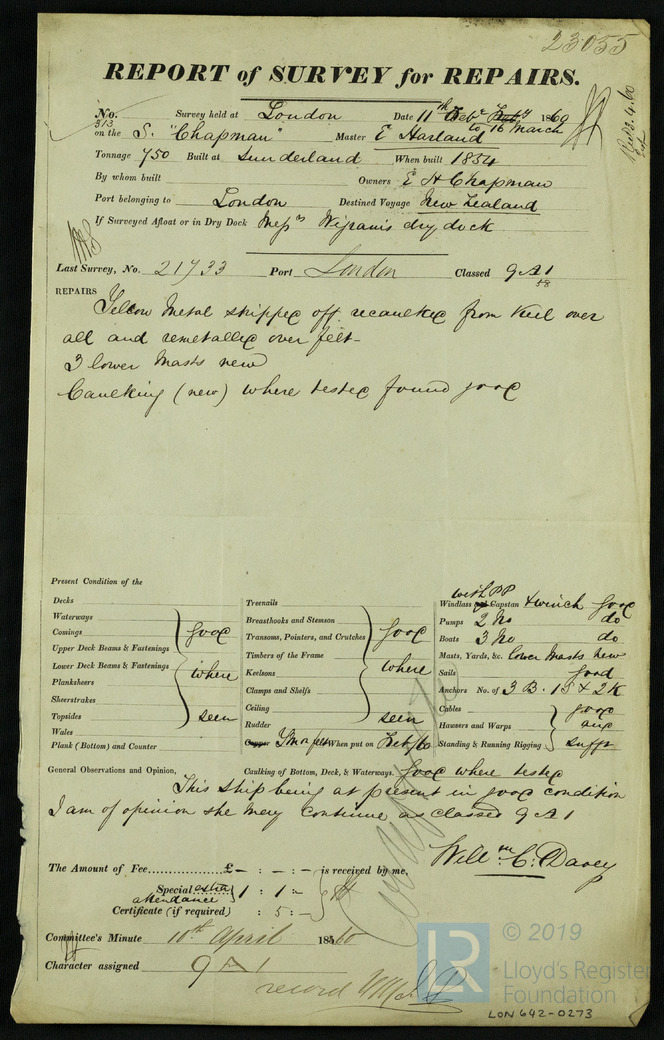 23055
REPORT of SURVEY for REPAIRS.
No. 313 Survey held at London Date 11th Feby 1860
to 16 March
on the S. "Chapman" Master E Harland
Tonnage 750 Built at Sunderland When built 1854
By whom built Owners E H Chapman
Port belonging to London Destined Voyage New Zealand
If Surveyed Afloat or in Dry Dock Messrs Wigrams dry dock
Last Survey, No. 21733 Port London Classed 9 A 1
58
REPAIRS
Yellow Metal stripped off recaulked from Keel over
all and remetalled over felt
3 lower Masts new
Caulking (new) where tested found good
Present Condition of the
Decks
Waterways
Comings
Upper Deck Beams & Fastenings
Lower Deck Beams & Fastenings
Planksheers
Sheerstrakes
Topsides
Wales
Plank (Bottom) and Counter
good
where
seen
Treenails
Breasthooks and Stemson
Transoms, Pointers, and Crutches
Timbers of the Frame
Keelsons
Clamps and Shelfs
Ceiling
Rudder
good
where
seen
Copper YM on felt When put on Feb/60
with PP
Windlass and Capstan & winch good
Pumps 2 No do
Boats 3 No do
Masts, Yards, &c. lower Masts new
Sails good
Anchors No. of 3 B. 1 S & 2 K
Cables
Hawsers and Warps
Standing & Running Rigging
good
and
sufft
General Observations and Opinion, Caulking of Bottom, Deck, & Waterways. Good where tested
This ship being at present in good condition
I am of opinion she may continue as classed 9 A 1
Willm C. Davey
The Amount of Fee £ - : - : - is received by me,
Special extra attendance 1 : 1 : -
Certificate (if required) : 5 : -
Committee's Minute 10th April 1860
Character assigned 9 A 1
record
LR
© 2019
Lloyd's Register
Foundation
LON 642-0273